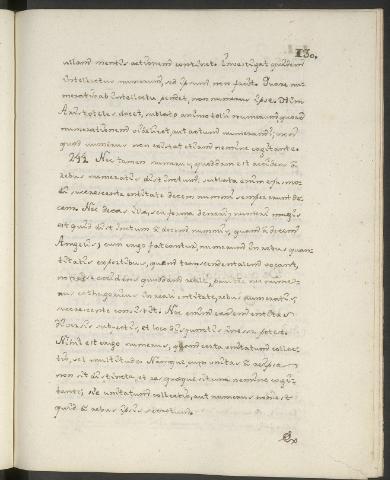 130.
ullam mentis actionem continet. Investigat quidem
intellectus numerum, sed ipsum non facit. Quare nu-
meratio ab intellectu pendet, non numerus ipse. Dum
Aristoteles docet, sublato animo tolli numerum quoad
numerationem videlicet, aut actum numerandi; non
quod numerus non existat etiam nemine cogitante.
244. Nec tamen numerus quoddam est accidens a
rebus numeratis distinctum; sublata enim ejusmo-
di succrescente entitate decem nummi semper erunt de-
cem. Nec decas illa, seu forma denarii numeri magis
est quid distinctum a decem nummis, quam a decem
Angelis; cum ergo fateantur, numerum in rebus quan-
titatis expertibus, quem transcendentalem vocant,
non esse accidens quoddam reale, pariter nec nume-
rus cathegoricus in reali entitate, rebus numeratis,
succrescente consistit. Nec enim eadem entitas
diversis subjectis, et loco disjunctis inesse potest.
Nihil est ergo numerus, quam certa unitatum collec-
tio, vel multitudo. Namque cum unitas a re ipsa
non sit distincta, et res quoque sit una nemine cogi-
tante; sic unitatum collectio, aut numerus nobis est
quid a rebus ipsis secretum.
Ex